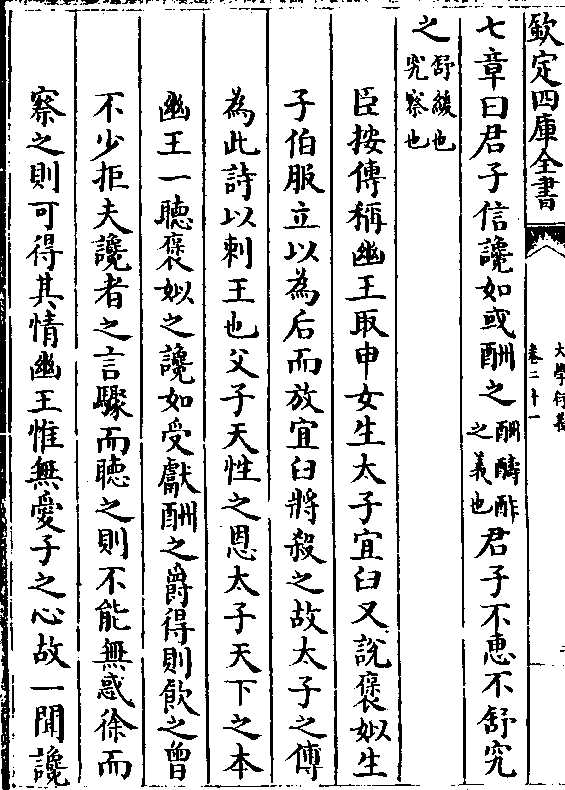 欽定四庫全書
大學衍義
卷二十一
七章曰君子信讒如或酬之酬醻酢之義也君子不惠不舒究
之舒緩也究察也
臣按傳稱幽王取申女生太子宜臼又說褒姒生
子伯服立以為后而放宜臼將殺之故太子之傅
為此詩以刺王也父子天性之恩太子天下之本
幽王一聽褒姒之讒如受獻酬之爵得則飲之曾
不少拒夫讒者之言驟而聽之則不能無惑徐而
察之則可得其情幽王惟無愛子之心故一聞讒